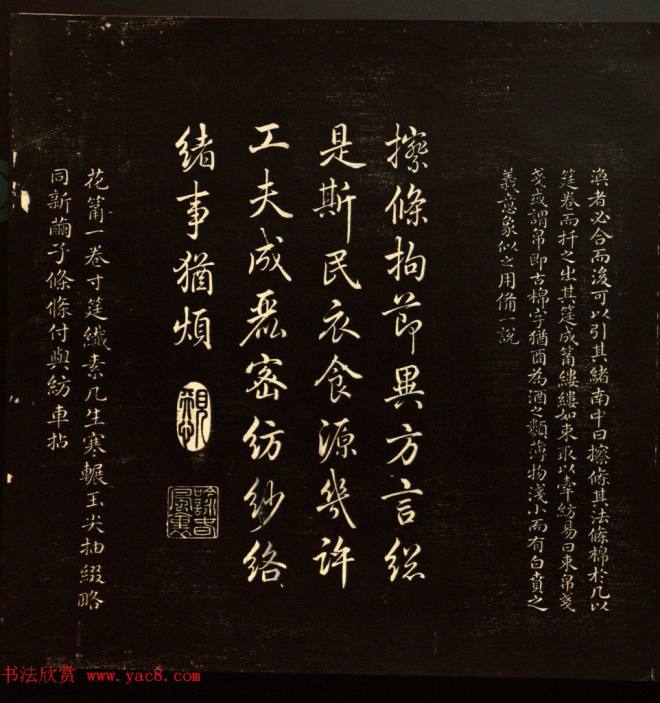 渙者必合而後可以引其緒南中曰擦條其法條棉於几以
筳卷而扞之出其筳成筩縷縷如束取以牽紡易曰束帛戔
戔或謂帛即古棉字猶酉為酒之類薄物淺小而有白賁之
義意象似之用備一說
擦條拘節異方言總
是斯民衣食源幾許
工夫成氎密紡紗絡
緒事猶煩
花筩一卷寸筳纖素几生寒輾玉尖抽綴略
同新繭子條條付與紡車拈
书法欣赏 www.yac8.com